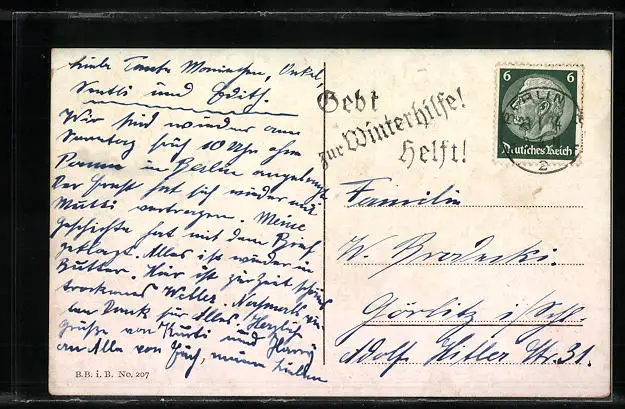 Liebe Tante Monischen, Onkel,
und Edith.
Wir sind wieder am
Sonntag früh 10 Uhr ohne
Panne in Berlin angelangt.
Der Ernst hat sich wieder mit
Mutti vertragen. Meine
Geschichte hat mit dem Brief
geklappt. Alles ist wieder in
Butter. Hier ist zur Zeit schönes
trockenes Wetter. Nochmals vie-
len Dank für Alles. Herzliche
Grüße von Kurti und Harry
an Alle von Euch, meine Lieben
B.B. i. B. No. 207
Gebt
zur Winterhilfe!
Helft!
6 6
BERLIN
Deutsches Reich
2
Familie
W. Brodecki.
Görlitz i/Schl.
Adolf Hitler Str. 31.